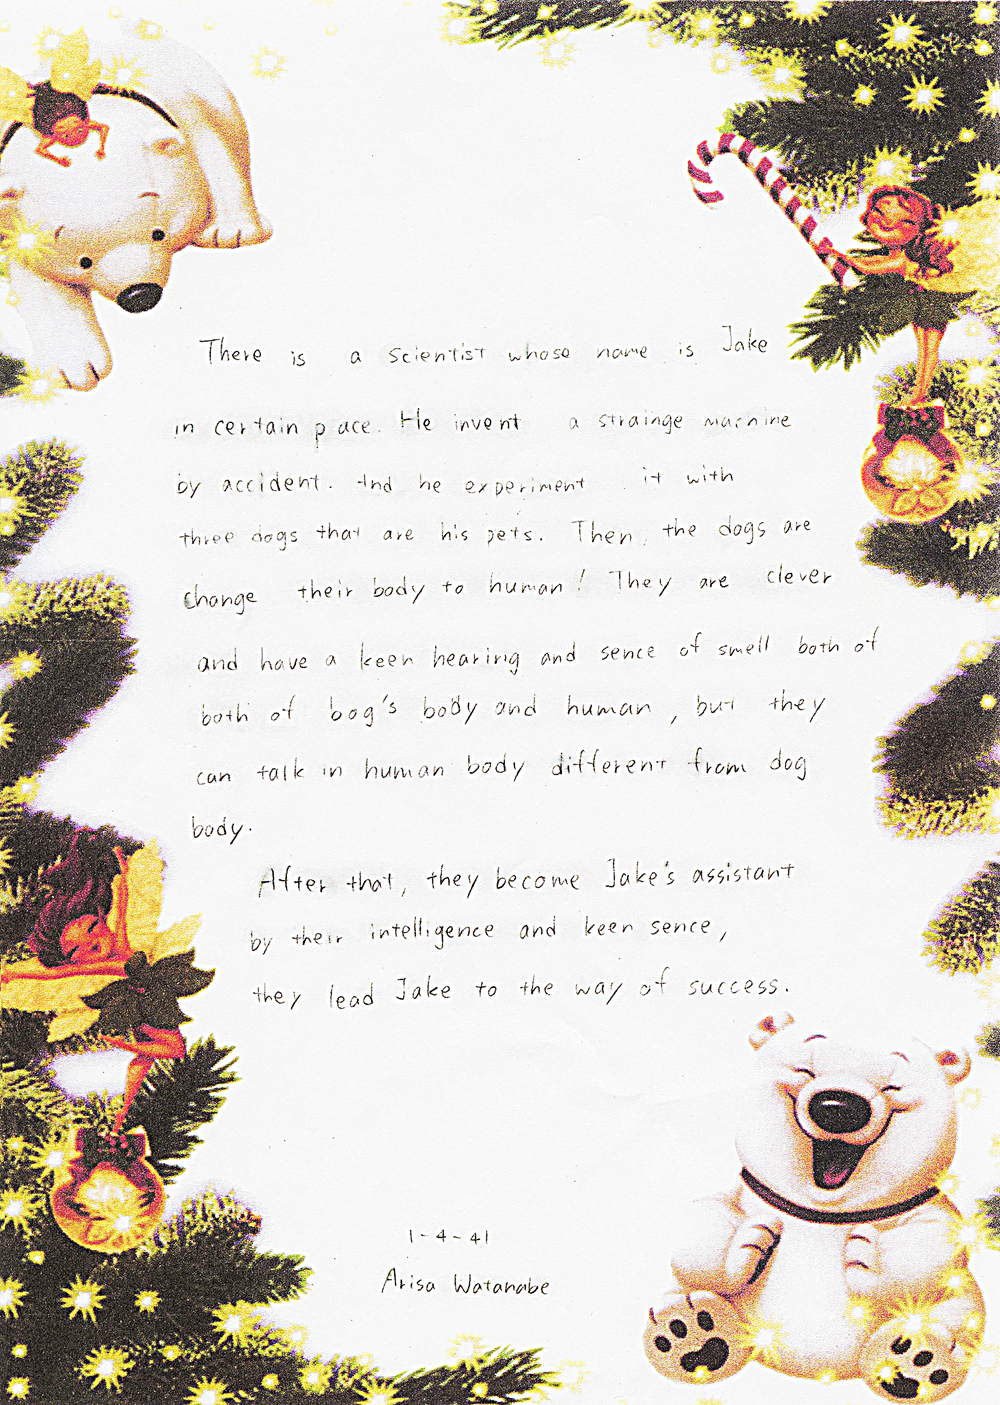 There is a scientist whose name is Jake
in certain pace. He invent a strainge machine
by accident. And he experiment it with
three dogs that are his pets. Then, the dogs are
change their body to human! They are clever
and have a keen hearing and sence of smell both of
both of bog's body and human, but they
can talk in human body different from dog
body.
After that, they become Jake's assistant
by their intelligence and keen sence,
they lead Jake to the way of success.
1-4-41
Arisa Watanabe